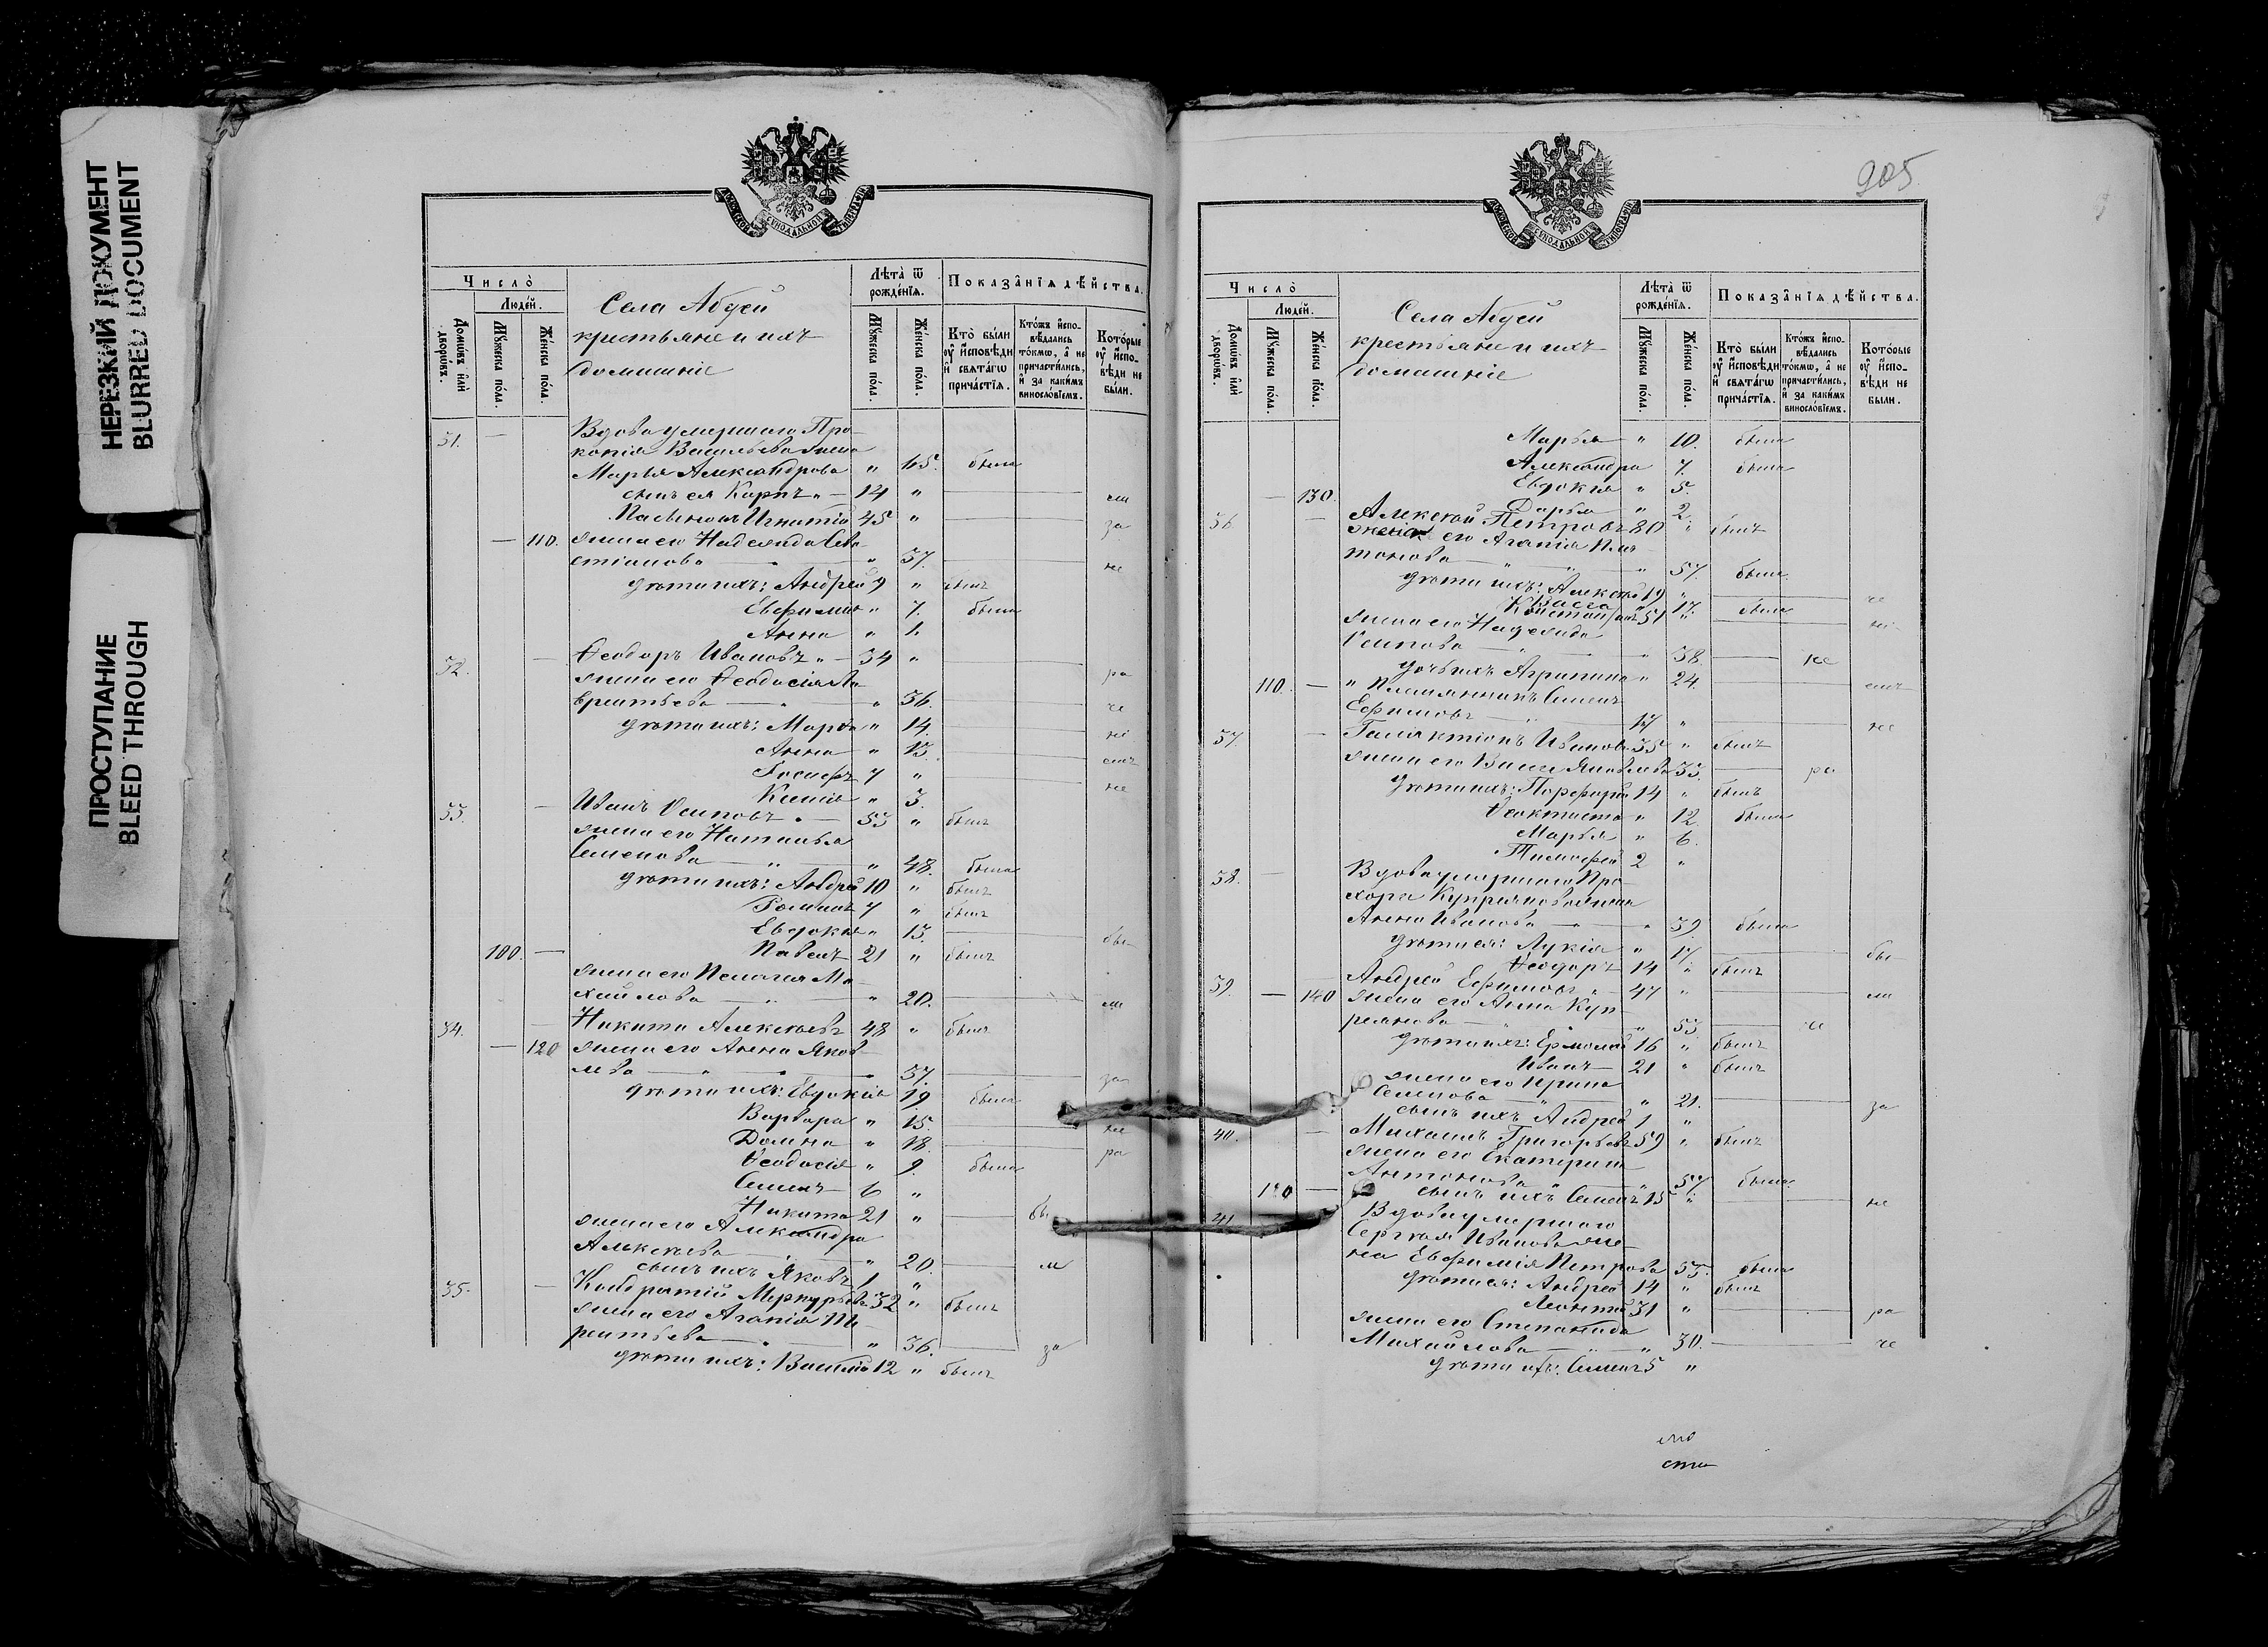 НЕРЕЗКИЙ ДОКУМЕНТ
BLURRED DOCUMENT
ПРОСТУПАНИЕ
BLEED THROUGH
МОСКОВСКОЙ СѴНОДАЛЬНОЙ ТИПОГРАФІИ
Число̀
Люде́й.
Домѡ́въ и҆лѝ дворѡ́въ.
Мꙋ́жеска по́ла.
Же́нска по́ла.
Села Абдей
крестьяне и ихъ
домашніе
Лѣта̀ ѿ рожде́нїѧ.
Мꙋ́жеска по́ла.
Же́нска по́ла.
Показа̂нїѧ дѣ́йства.
Кто̀ бы́ли оу҆ и҆сповѣ́ди и҆ свѧта́гѡ прича́стїѧ.
Кто́жъ и҆спо-вѣ́дались то́кмѡ, а҆ не причасти́лись, и҆ за каки́мъ винослоⷡ҇їемъ.
Кото́рые оу҆ и҆спо-вѣ́ди не бы́ли.
31. — Вдова умершаго Про-
копія Васильева жена
Марья Александрова " 45. была
сынъ ея Карпъ " — 14 "
Пасынокъ Игнатій 45 " за
— 110. жена его Надежда Сева-
стіанова " 37. не
дѣти ихъ: Андрей 9 " былъ
Евфимія " 7. была
Анна " 1.
32. — Ѳеодоръ Ивановъ " — 34 "
жена его Ѳеодосія Ла-
врентьева — " 36. ра
дѣти ихъ: Марѳа " 14. че
Анна " 13. ні
Іосифъ 7 " емъ
Ксенія " 3. не
33. — Иванъ Осиповъ " — 53 " былъ
жена его Наталья
Семенова — " 48. была
дѣти ихъ: Андрей 10 " былъ
Романъ 7 " былъ
Евдокія " 13. бы
100. — Павелъ 21 " былъ
жена его Пелагія Ми-
хайлова — " 20.
34. — Никита Алексѣевъ 48 " былъ
— 120 жена его Анна Яков-
лева — " 37. за
дѣти ихъ: Евдокія 19 была
Варвара " 15. не
Домна " 18. ра
Ѳеодосія " 9. была
Семенъ 6 "
Никита 21 " бы
жена его Александра
Алексѣева — " 20.
сынъ ихъ Яковъ 1 "
35. — Кодратій Меркурьевъ 32 " былъ
жена его Агапія Те-
рентьева — " 36. за
дѣти ихъ: Василій 12 " былъ
905
МОСКОВСКОЙ СѴНОДАЛЬНОЙ ТИПОГРАФІИ
Число̀
Люде́й.
Домѡ́въ и҆лѝ дворѡ́въ.
Мꙋ́жеска по́ла.
Же́нска по́ла.
Села Абдей
крестьяне и ихъ
домашніе
Лѣта̀ ѿ рожде́нїѧ.
Мꙋ́жеска по́ла.
Же́нска по́ла.
Показа̂нїѧ дѣ́йства.
Кто̀ бы́ли оу҆ и҆сповѣ́ди и҆ свѧта́гѡ прича́стїѧ.
Кто́жъ и҆спо-вѣ́дались то́кмѡ, а҆ не причасти́лись, и҆ за каки́мъ винослоⷡ҇їемъ.
Кото́рые оу҆ и҆спо-вѣ́ди не бы́ли.
Марья " 10. была
Александра 7. была
Евдокія " 5.
— 130. Дарья " 2.
36. — Алексѣй Петровъ 80 " былъ
жена его Агапія Пла-
тонова — " 57. была
дѣти ихъ: Алексѣй 19 " че
Васса " 17. была
Константинъ 51 " ні
жена его Надежда
Осипова — " 38. не
дочь ихъ Агрипина " 24. емъ
110. — " Племянникъ Семенъ
Ефимовъ — " 17 " не
37. — Галактіонъ Ивановъ 35 " былъ
жена его Васса Яковлева 33. ра
дѣти ихъ: Порфирій 14 " былъ
Ѳеоктиста " 12. была
Марья " 6.
Тимофей 2 "
38. — Вдова умершаго Про-
хора Купріянова жена
Анна Иванова — " 39. была
дѣти ея: Лукія " 17. бы
Ѳеодоръ 14 " былъ
39. — Андрей Ефимовъ " — 47 "
— 140 жена его Анна Куп-
реянова — " 53. че
дѣти ихъ: Ермолай 16 " былъ
Иванъ 21 " былъ
жена его Ирина
Семенова — " 21. за
сынъ ихъ Андрей 1 "
40. — Михаилъ Григорьевъ 59 " былъ
жена его Екатерина
Антонова — " 57. была
120 — сынъ ихъ Семенъ 15 " не
41. Вдова умершаго
Сергѣя Иванова же-
на Евфимія Петрова 53. была
дѣти ея: Андрей 14 " былъ
Леонтій 31 " ра
жена его Степанида
Михайлова — " 30. че
дѣти ихъ: Семенъ 5 "